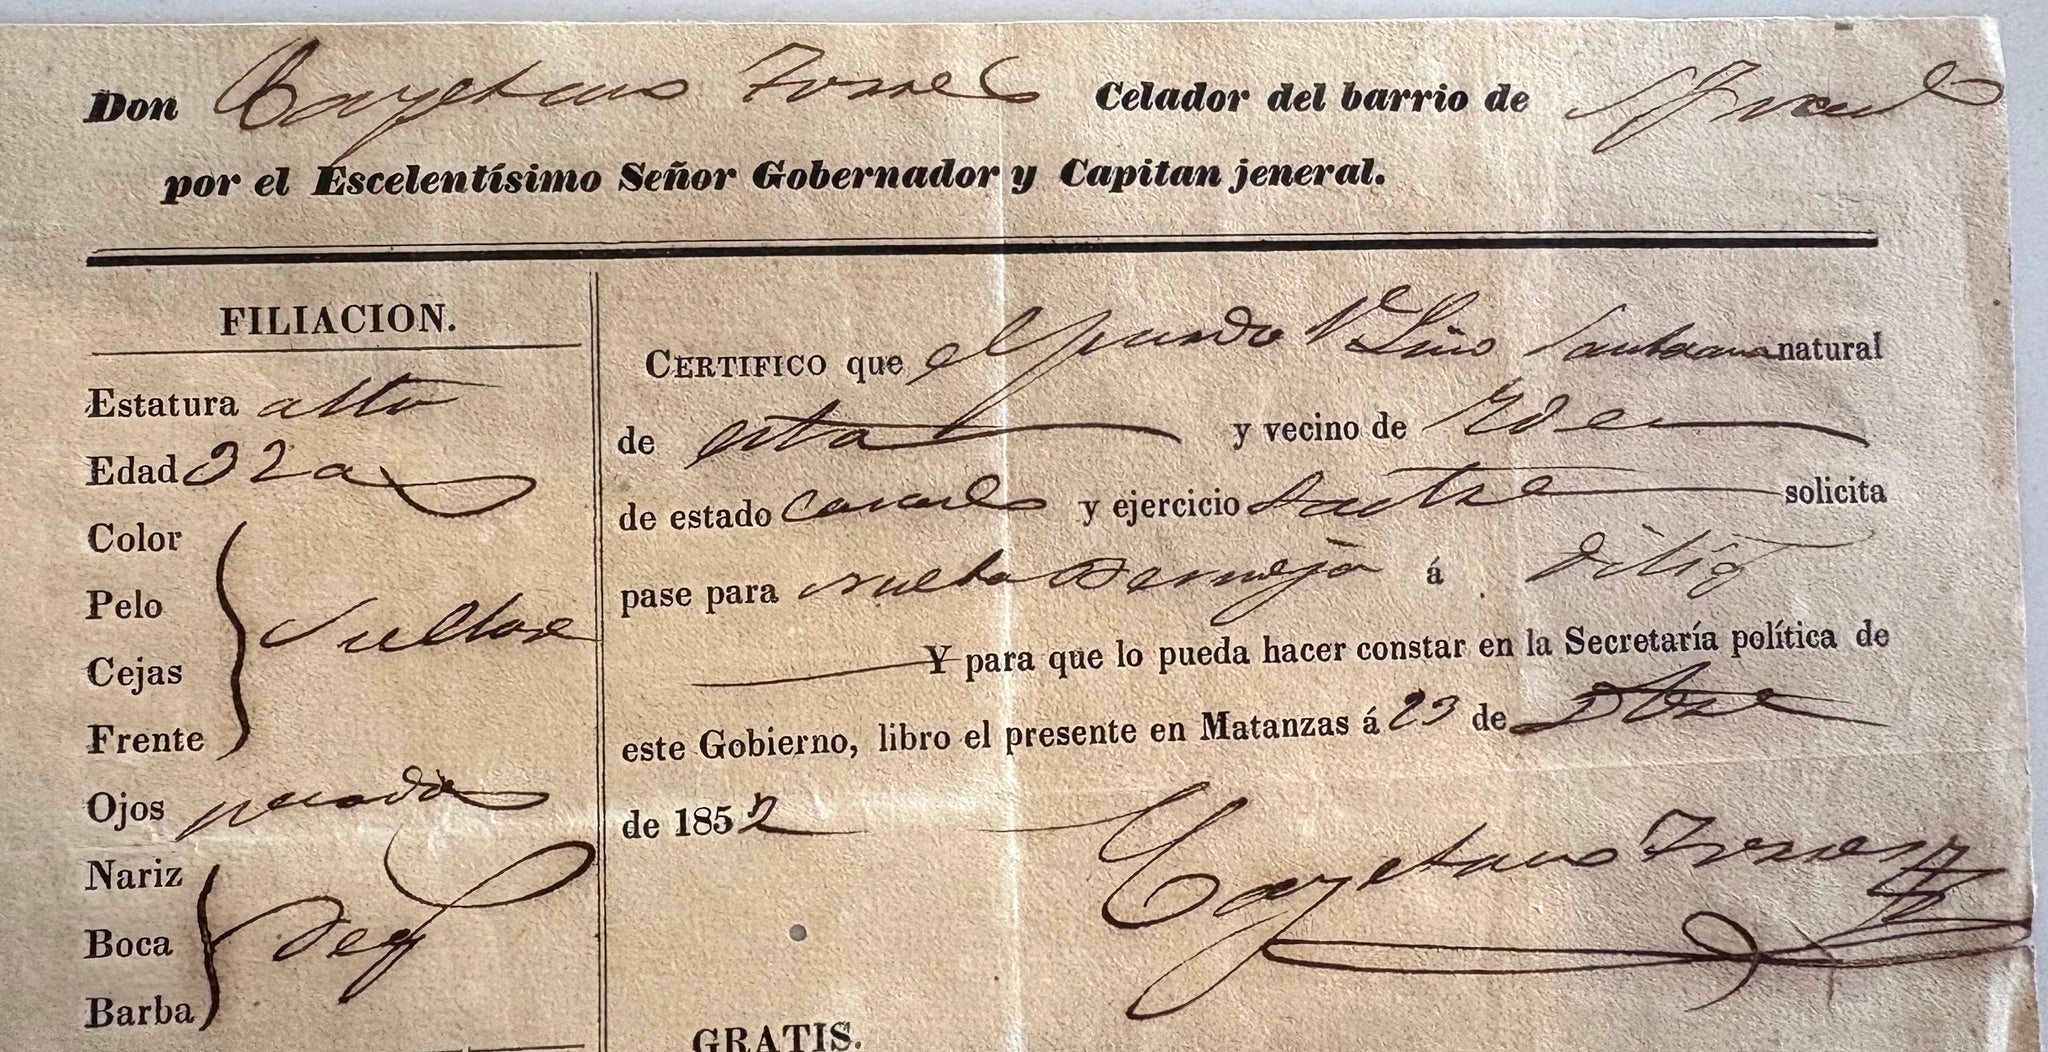 Don Cayetano Torres Celador del barrio de
por el Escelentísimo Señor Gobernador y Capitan jeneral.
FILIACION.
Estatura alto
Edad 32 a
Color
Pelo
Cejas
Frente
Ojos pardos
Nariz
Boca
Barba
CERTIFICO que el pardo Lino Santana natural
de esta y vecino de Yden
de estado casado y ejercicio Sastre solicita
pase para á dilig
Y para que lo pueda hacer constar en la Secretaría política de
este Gobierno, libro el presente en Matanzas á 23 de
de 1852
Cayetano Torres
GRATIS.